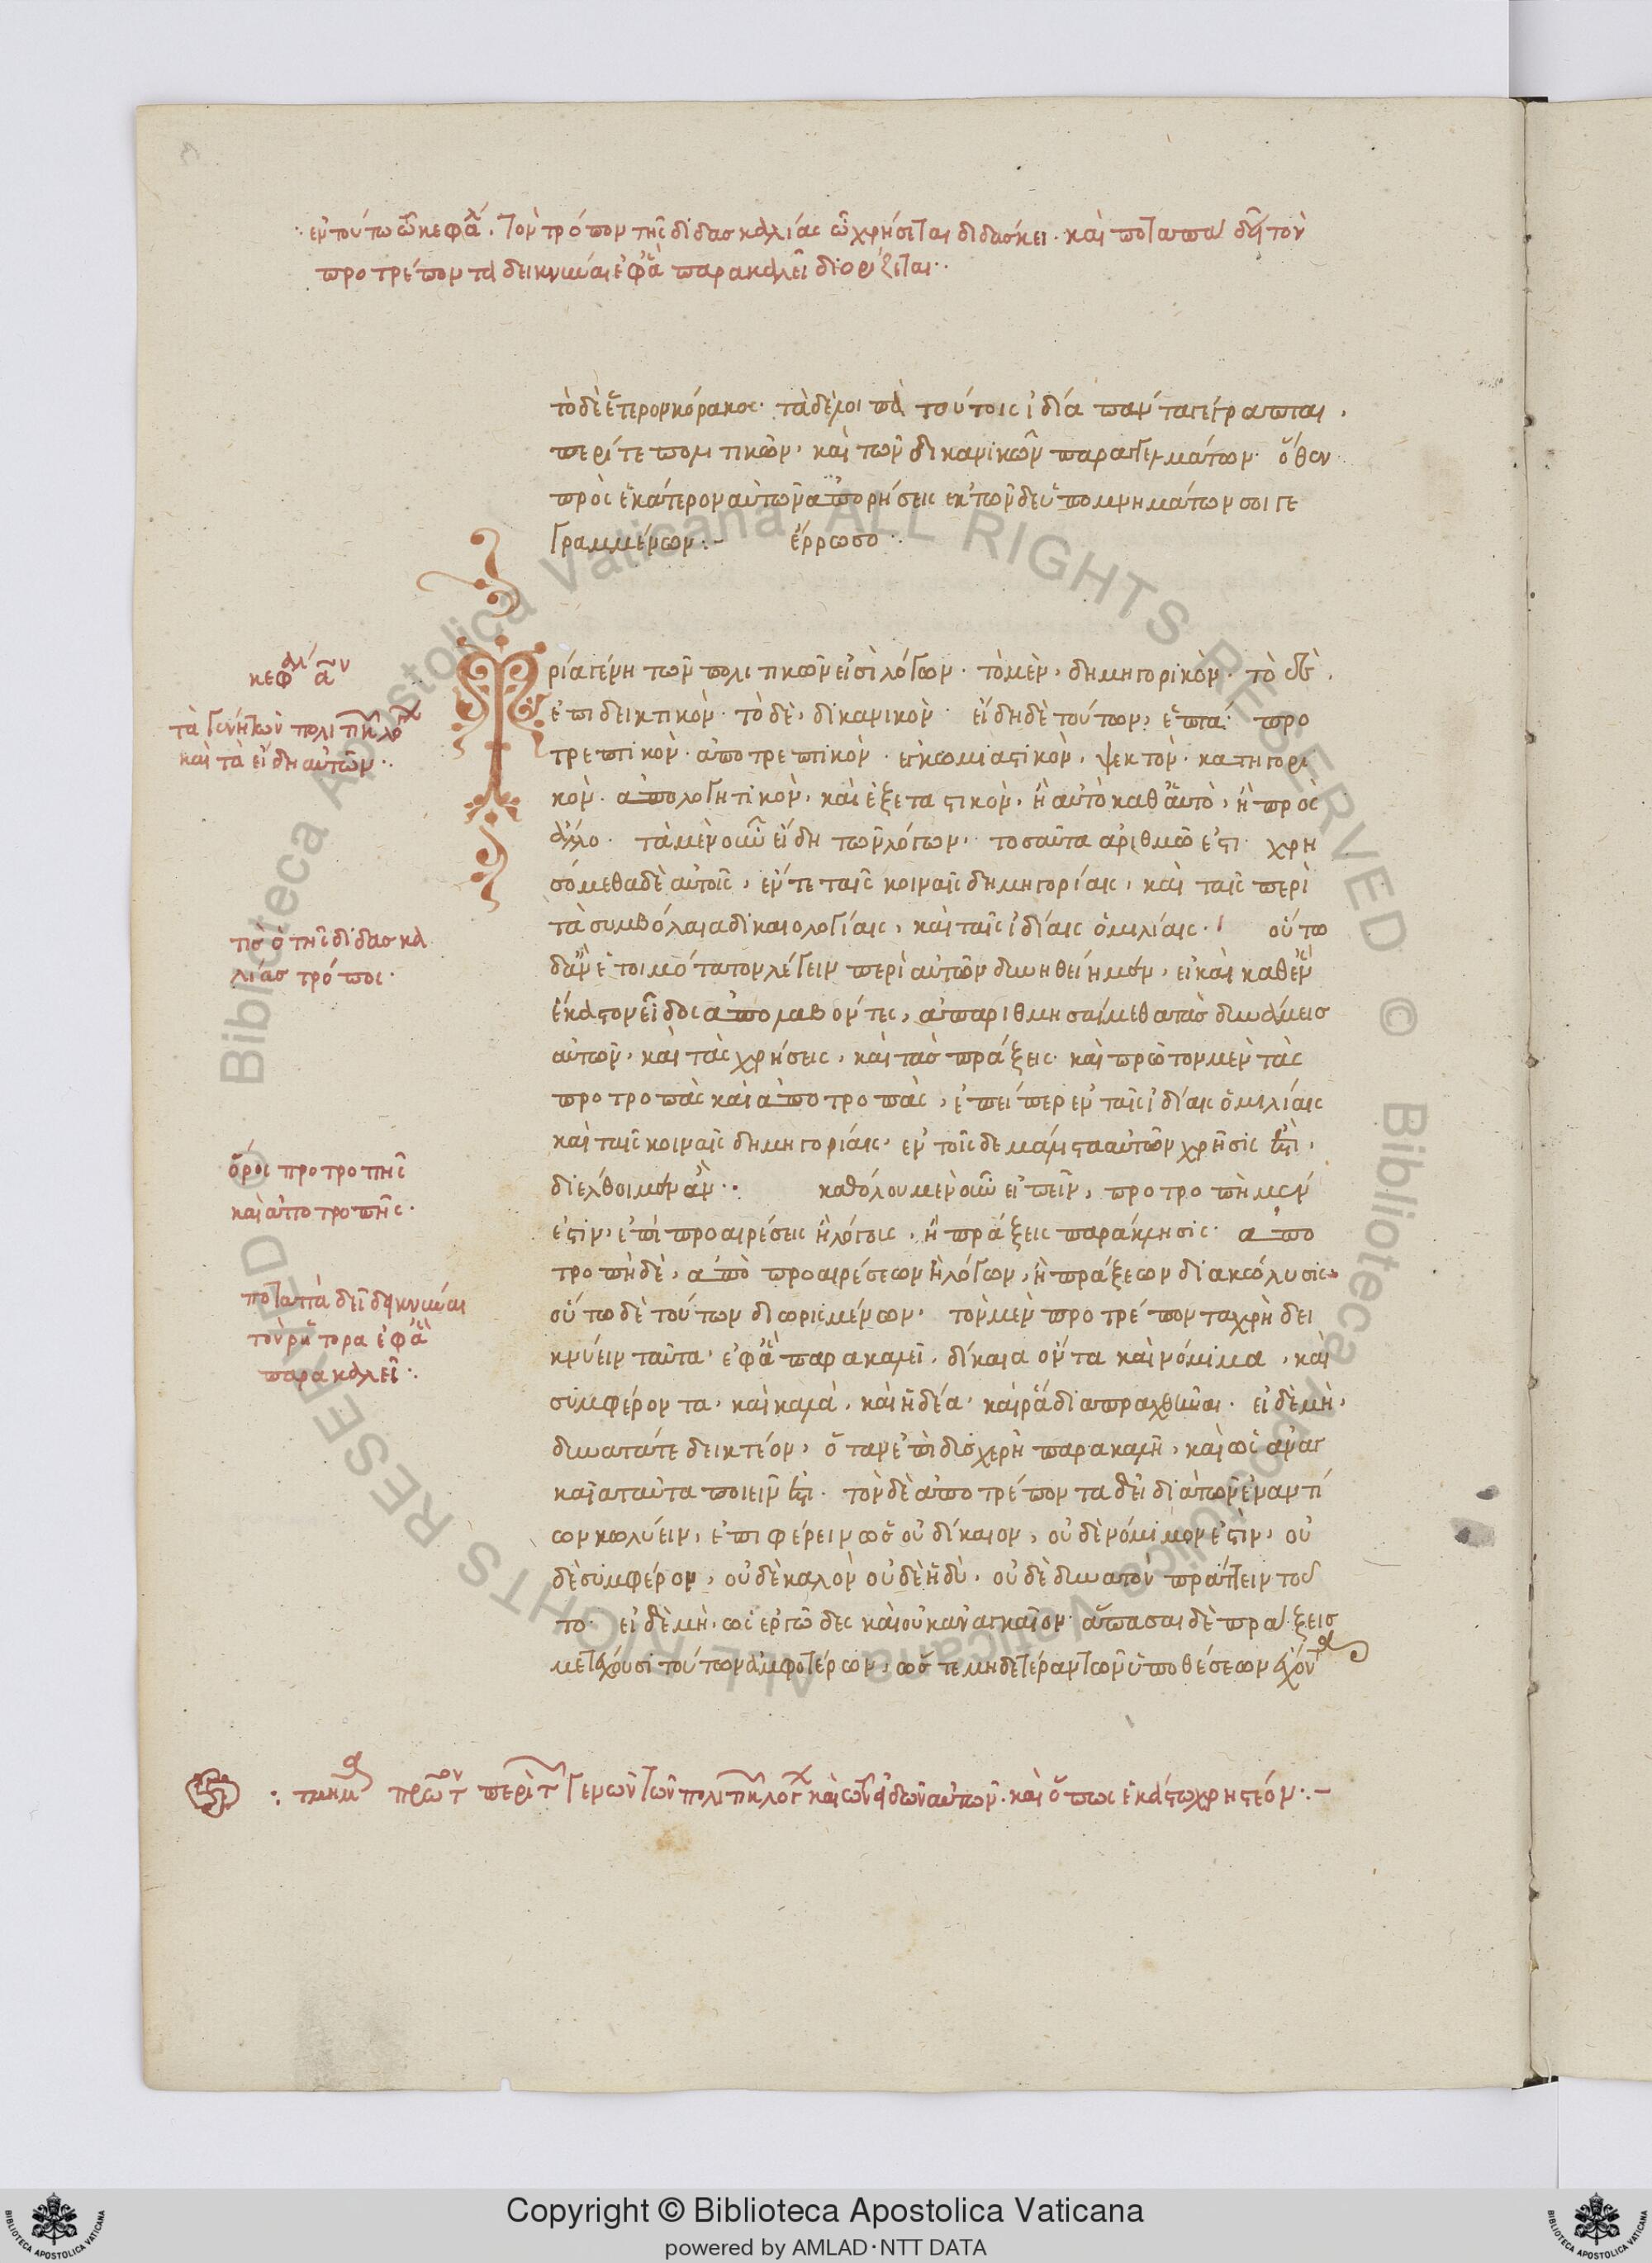 ἐν τούτω τῶ κεφαλ. τὸν τρόπον τῆς διδασκαλίας ὧ χρήσεται διδάσκει. καὶ ποταπὰ δεῖ τὸν
προτρέποντα δεικνύναι ἐφ' ἃ παρακαλεῖ διορίζεται.
τὸ δὲ ἕτερον κόρακος. τὰ δὲ λοιπὰ τούτοις ἰδία πάντα γέγραπται.
περί τε πολιτικῶν, καὶ τῶν δικανικῶν παραγγελμάτων. ὅθεν
πρὸς ἑκάτερον αὐτῶν ἀπορήσεις ἐκ τῶνδε ὑπομνημάτων σοι γε
γραμμένων:- ἔρρωσο
κεφαλ α ον
τὰ γένη τῶν πολιτικῶν λόγων
καὶ τὰ εἴδη αὐτῶν
Τρία γένη τῶν πολιτικῶν εἰσὶ λόγων. τὸ μὲν, δημηγορικόν. τὸ δὲ
ἐπιδεικτικόν. τὸ δὲ, δικανικόν. εἴδη δὲ τούτων, ἑπτά. προ
τρεπτικόν. ἀποτρεπτικόν. ἐγκωμιαστικόν, ψεκτόν. κατηγορι
κόν. ἀπολογητικόν, καὶ ἐξεταστικόν, ἢ αὐτὸ καθ' αὑτὸ, ἢ πρὸς
ἄλλο. τὰ μὲν οὖν εἴδη τῶν λόγων, τοσαῦτα ἀριθμῶ ἐστι. χρη
σόμεθα δὲ αὐτοῖς, ἔν τε ταῖς κοιναῖς δημηγορίαις, καὶ ταῖς περὶ
τὰ συμβόλαια δικαιολογίαις, καὶ ταῖς ἰδίαις ὁμιλίαις. οὕτω
τίς ὁ τῆς διδασκα
λίας τρόπος
δ' ἂν ἑτοιμότατον λέγειν περὶ αὐτῶν δυνηθείημεν, εἰ καὶ καθ' ἓν
ἕκαστον εἶδος ἀπολαβόντες, ἀπαριθμησαίμεθα τὰς δυνάμεις
αὐτῶν, καὶ τὰς χρήσεις, καὶ τὰς πράξεις. καὶ πρῶτον μὲν τὰς
προτροπὰς καὶ ἀποτροπὰς, ἐπείπερ ἐν ταῖς ἰδίαις ὁμιλίαις
καὶ ταῖς κοιναῖς δημηγορίαις, ἐν τοῖς δε μάλιστα αὐτῶν χρῆσίς ἐστι,
ὅρος προτροπῆς
καὶ ἀποτροπῆς.
διέλθοιμεν ἄν. καθόλου μὲν οὖν εἰπεῖν, προτροπὴ μέν
ἐστιν, ἐπὶ προαιρέσεις ἢ λόγους, ἢ πράξεις παράκλησις. ἀπο
τροπὴ δὲ, ἀπὸ προαιρέσεων ἢ λόγων, ἢ πράξεων διακώλυσις.
ποταπὰ δεῖ δεικνύναι
τὸν ῥήτορα ἐφ' ἃ
παρακαλεῖ
οὕτω δὲ τούτων διωρισμένων, τὸν μὲν προτρέποντα χρὴ δει
κνύειν ταῦτα, ἐφ' ἃ παρακαλεῖ, δίκαια ὄντα καὶ νόμιμα, καὶ
συμφέροντα, καὶ καλὰ, καὶ ἡδέα, καὶ ῥάδια πραχθῆναι. εἰ δὲ μὴ,
δυνατά τε δεικτέον, ὅταν ἐπὶ δυσχερῆ παρακαλῆ, καὶ ὡς ἀναγ
καῖα ταῦτα ποιεῖν ἐστι. τὸν δὲ ἀποτρέποντα δεῖ διὰ τῶν ἐναντί
ων κωλύειν, ἐπιφέρειν ὡς οὐ δίκαιον, οὐδὲ νόμιμον ἐστὶν, οὐ
δὲ συμφέρον, οὐδὲ καλὸν οὐδὲ ἡδὺ, οὐδὲ δυνατὸν πράττειν τοῦ
το. εἰ δὲ μὴ, ὡς ἐργῶδες καὶ οὐκ ἀναγκαῖον. ἅπασαι δὲ πράξεις
μετέχουσι τούτων ἀμφοτέρων, ὥστε μηδετέραν τῶν ὑποθέσεων ἔχοντα
τμῆμα πρῶτον περὶ τ γενῶν τῶν πολιτικῶν λόγ καὶ τῶν εἰδῶν αὐτῶν. καὶ ὅπως ἑκάστω χρηστέον:-
Biblioteca Apostolica Vaticana ALL RIGHTS RESERVED © Biblioteca Apostolica Vaticana ALL RIGHTS RESERVED ©
Copyright © Biblioteca Apostolica Vaticana
powered by AMLAD·NTT DATA
BIBLIOTECA APOSTOLICA VATICANA
BIBLIOTECA APOSTOLICA VATICANA